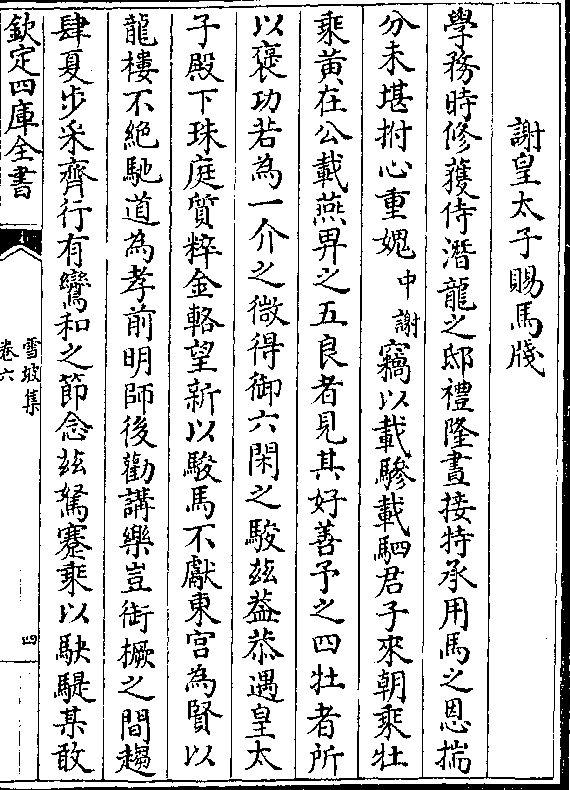 謝皇太子賜馬牋
學務時修獲侍潛龍之邸禮隆晝接特承用馬之恩揣
分未堪拊心重媿中謝竊以載驂載駟君子來朝乘牡
乘黄在公載燕畀之五良者見其好善予之四牡者所
以褒功若為一介之微得御六閑之駿兹葢恭遇皇太
子殿下珠庭質粹金輅望新以駿馬不獻東宫為賢以
龍樓不絶馳道為孝前明師後勸講樂豈銜橛之間趨
肆夏步采齊行有鸞和之節念兹駑蹇乘以駃騠某敢
欽定四庫全書
雪坡集
卷六
四